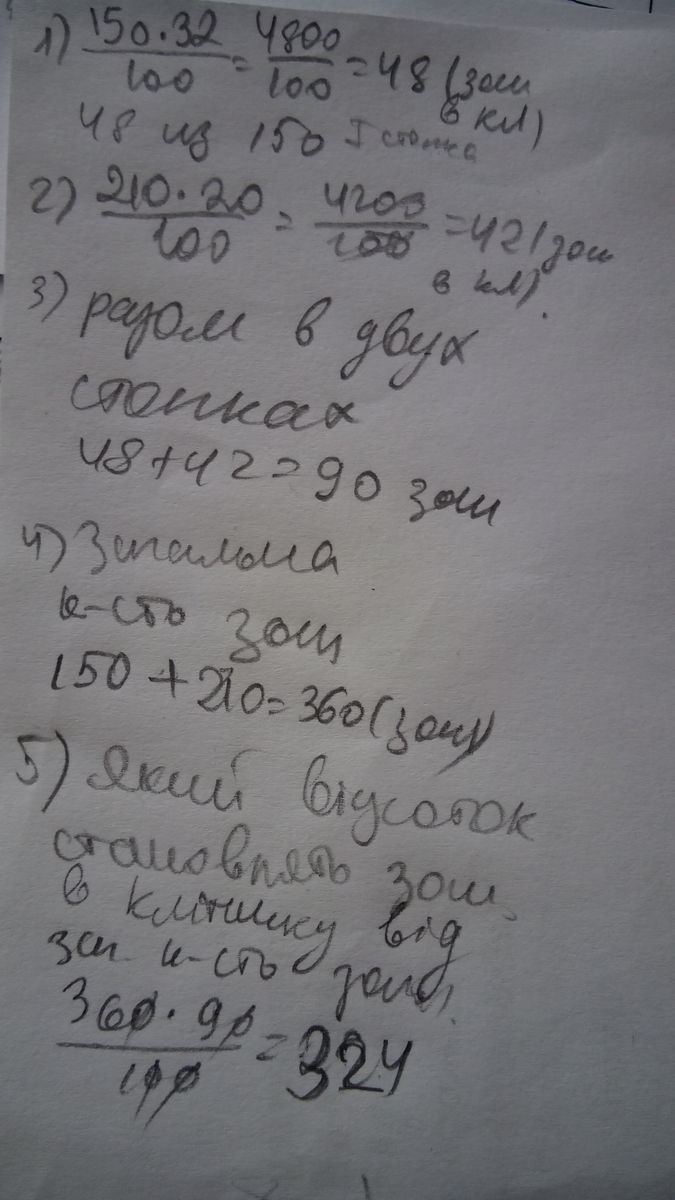 1) 150·32/100 = 4800/100 = 48 (зош
в кл)
48 из 150 I стопка
2) 210·20/100 = 4200/100 = 42 (зош
в кл).
3) разом в двух
стопках
48+42=90 зош
4) Загальна
к-сть зош
150+210=360(зош)
5) Який відсоток
становлять зош.
в клітинку від
заг. к-сть зош.
360·90/100 = 324